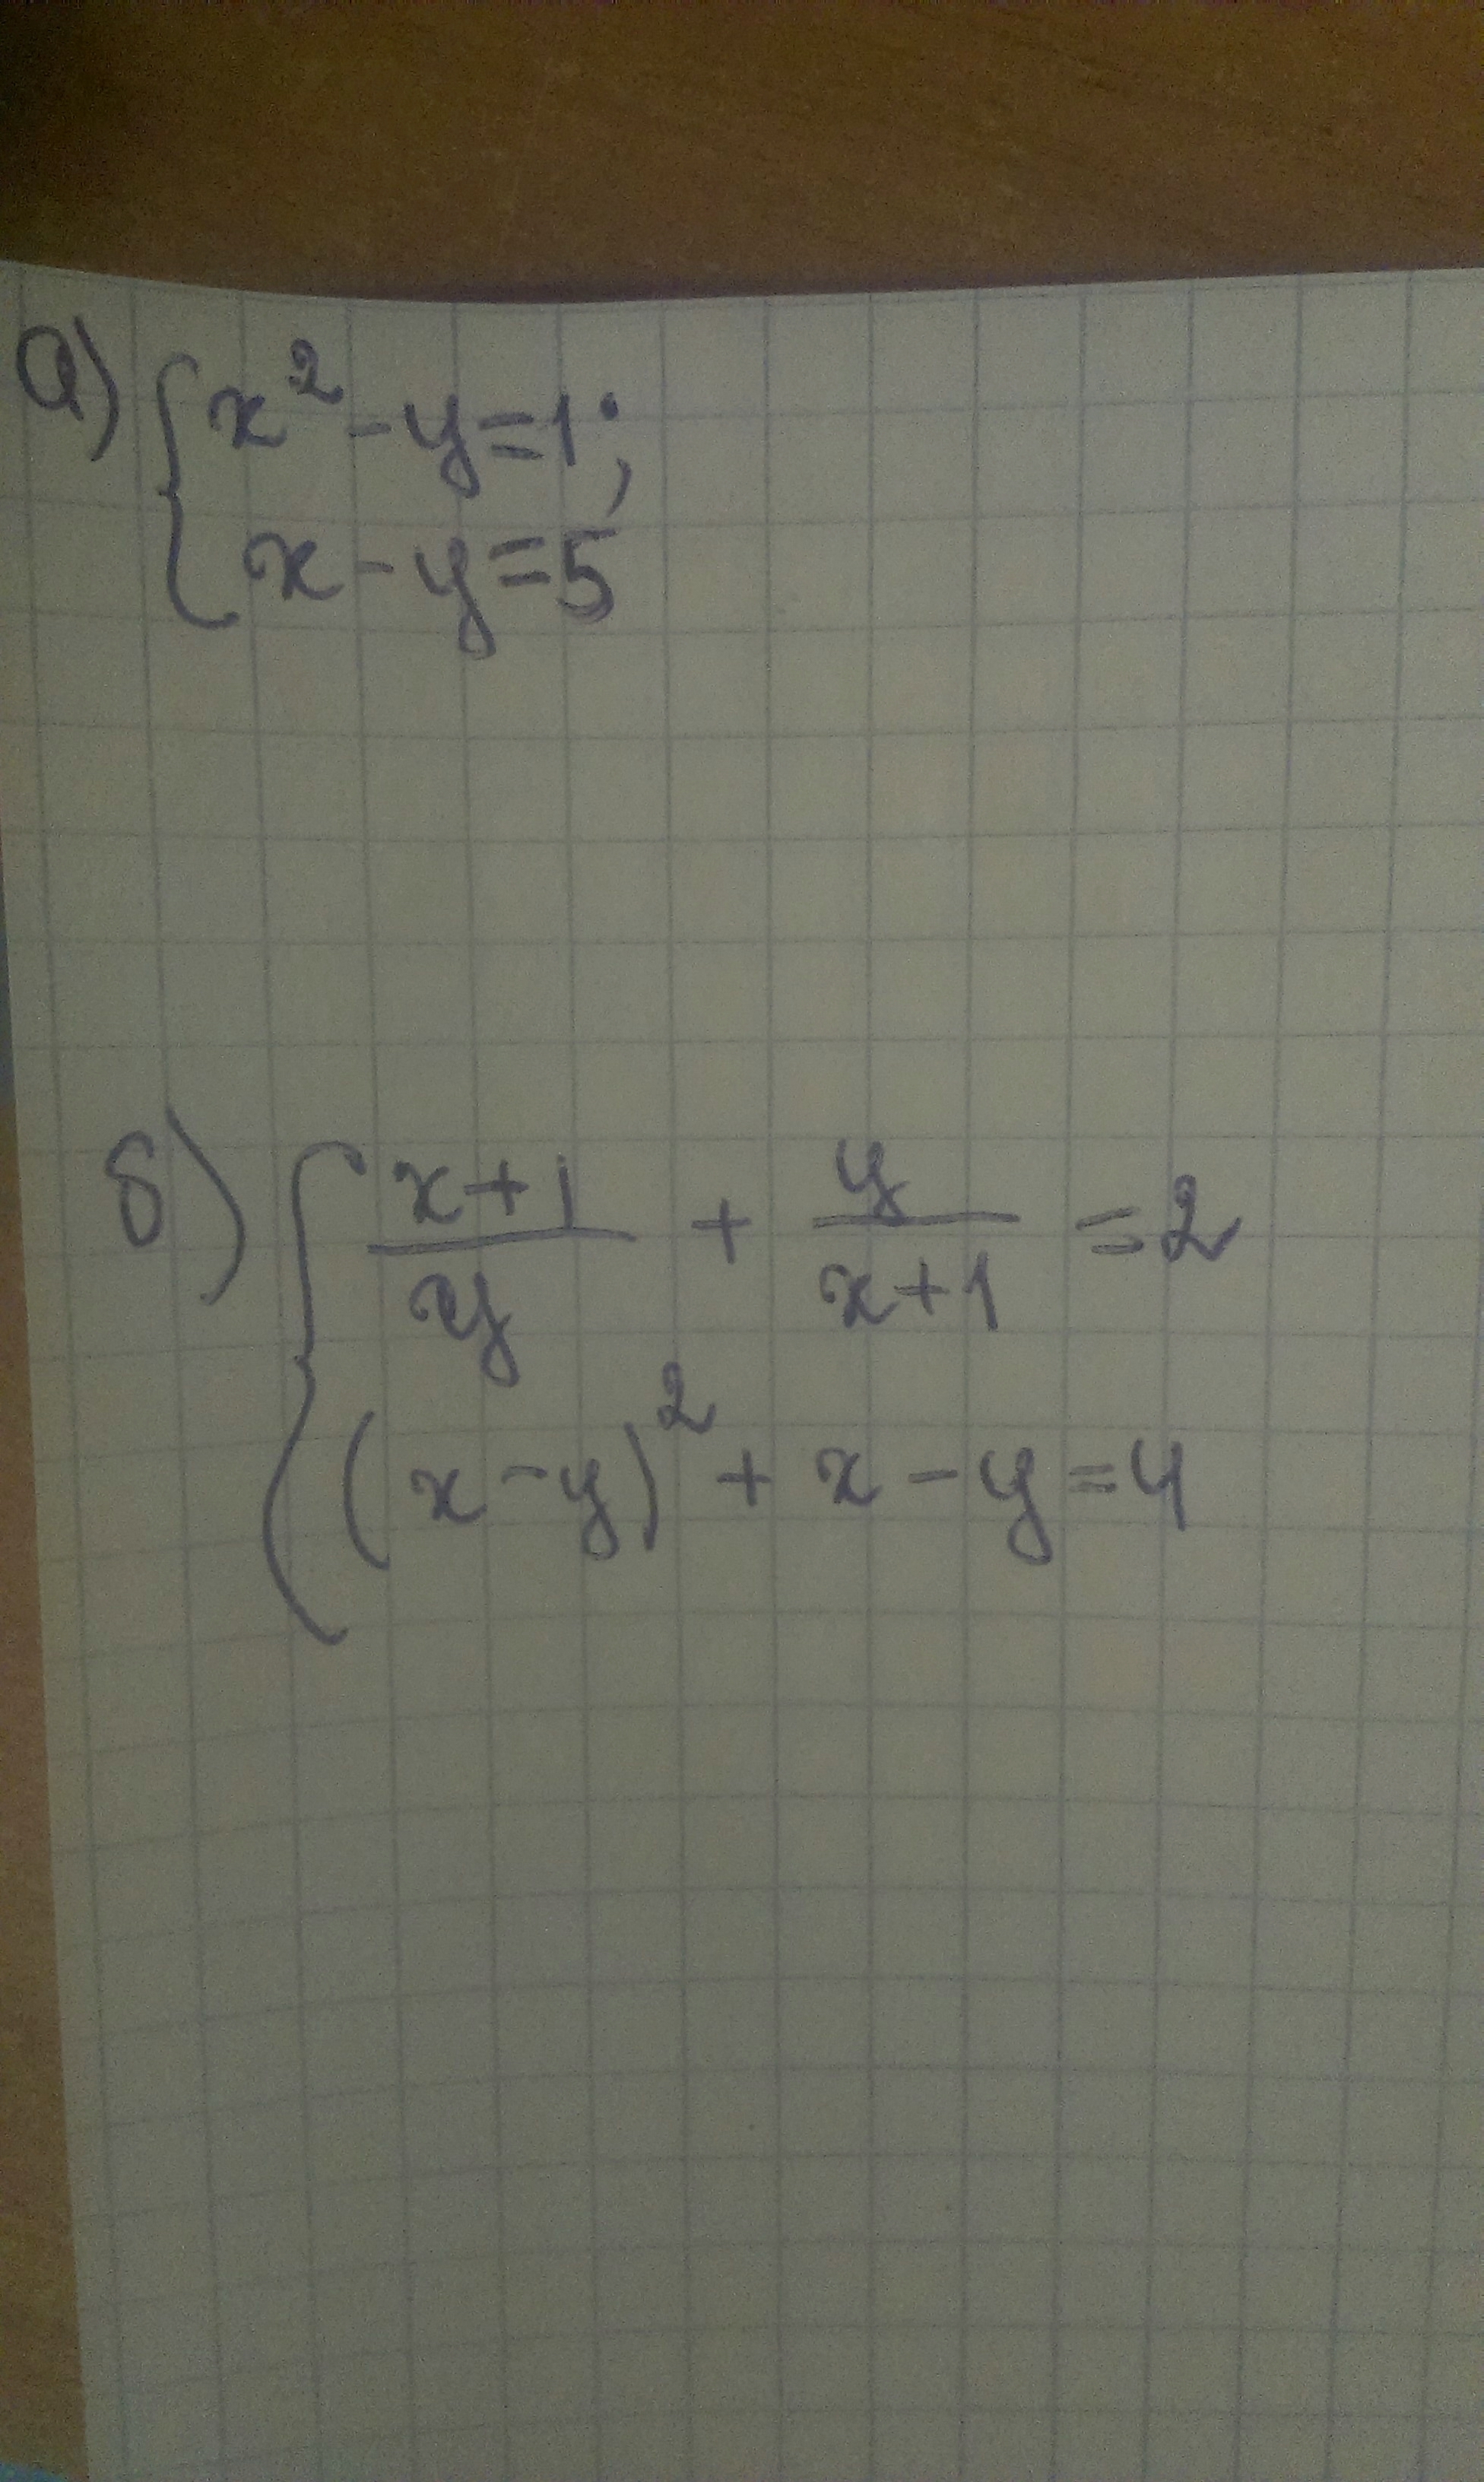 а) { x² - y = 1;
x - y = 5
б) { (x+1)/y + y/(x+1) = 2
(x - y)² + x - y = 4